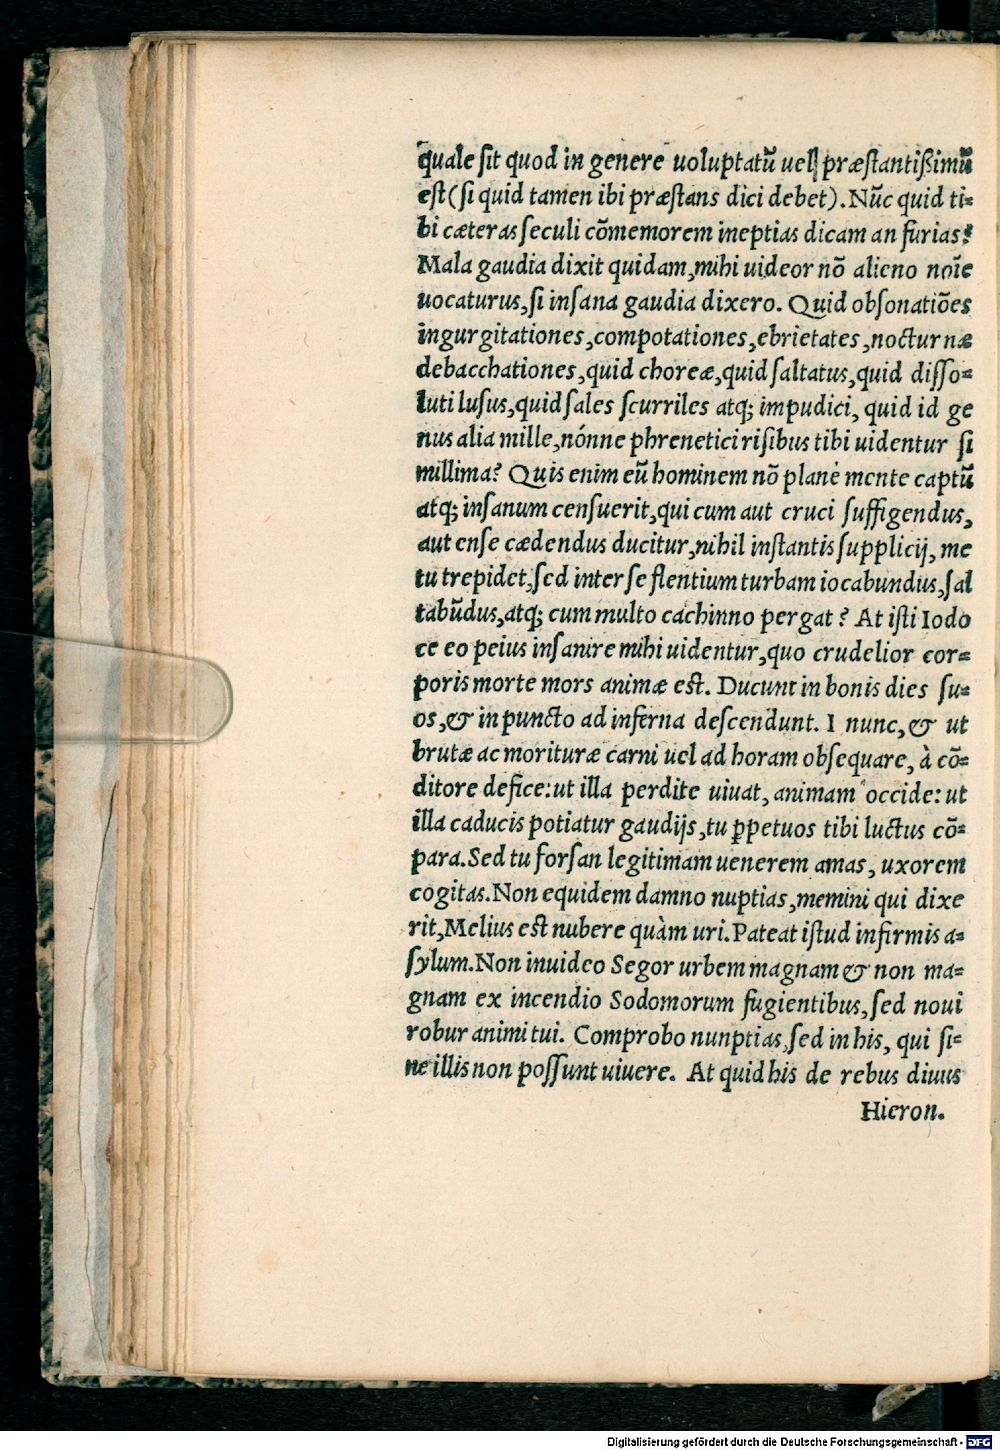 quale sit quod in genere uoluptatũ uel præstantißimũ
est(si quid tamen ibi præstans dici debet). Nũc quid ti=
bi cæteras seculi cõmemorem ineptias dicam an furias?
Mala gaudia dixit quidam,mihi uideor nõ alieno noĩe
uocaturus,si insana gaudia dixero. Quid obsonatiões
ingurgitationes,compotationes,ebrietates,nocturnæ
debacchationes,quid choreæ,quid saltatus,quid disso=
luti lusus,quid sales scurriles atq; impudici, quid id ge
nus alia mille,nónne phrenetici risibus tibi uidentur si
millima? Quis enim eũ hominem nõ planè mente captũ
atq; insanum censuerit,qui cum aut cruci suffigendus,
aut ense cædendus ducitur,nihil instantis supplicij, me
tu trepidet,sed inter se flentium turbam iocabundus,sal
tabũdus,atq; cum multo cachinno pergat? At isti Iodo
ce eo peius insanire mihi uidentur,quo crudelior cor=
poris morte mors animæ est. Ducunt in bonis dies su=
os,& in puncto ad inferna descendunt. I nunc,& ut
brutæ ac morituræ carni uel ad horam obsequare, à cõ=
ditore defice:ut illa perdite uiuat, animam occide: ut
illa caducis potiatur gaudijs,tu ꝑpetuos tibi luctus cõ=
para.Sed tu forsan legitimam uenerem amas, uxorem
cogitas.Non equidem damno nuptias,memini qui dixe
rit,Melius est nubere quàm uri.Pateat istud infirmis a=
sylum.Non inuideo Segor urbem magnam & non ma=
gnam ex incendio Sodomorum fugientibus,sed noui
robur animi tui. Comprobo nunptias,sed in his, qui si=
ne illis non possunt uiuere. At quid his de rebus diuus
Hieron.
Digitalisierung gefördert durch die Deutsche Forschungsgemeinschaft - DFG